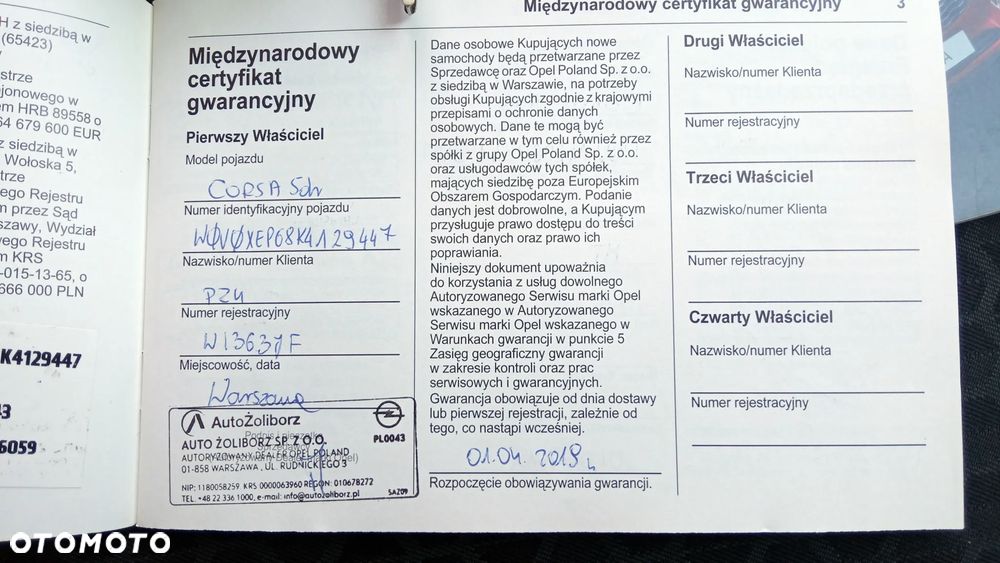 H z siedzibą w
(65423)
estrze
jonowego w
em HRB 89558 o
64 679 600 EUR
z siedzibą w
Wołoska 5,
trze
ego Rejestru
m przez Sąd
szawy, Wydział
wego Rejestru
em KRS
-015-13-65, o
666 000 PLN
K4129447
6059
Międzynarodowy certyfikat gwarancyjny 3
Międzynarodowy
certyfikat
gwarancyjny
Pierwszy Właściciel
Model pojazdu
CORSA 5dr
Numer identyfikacyjny pojazdu
W0V0XEP68K4129447
Nazwisko/numer Klienta
PZU
Numer rejestracyjny
WI3637F
Miejscowość, data
Warszawa
AutoŻoliborz
AUTO ŻOLIBORZ SP. Z O.O.
PL0043
AUTORYZOWANY DEALER OPEL POLAND
01-858 WARSZAWA, UL. RUDNICKIEGO 3
NIP: 1180058259. KRS 0000063960 REGON: 010678272
TEL. +48 22 336 1000, e-mail: info@autozoliborz.pl
SAZ09
Dane osobowe Kupujących nowe
samochody będą przetwarzane przez
Sprzedawcę oraz Opel Poland Sp. z o.o.
z siedzibą w Warszawie, na potrzeby
obsługi Kupujących zgodnie z krajowymi
przepisami o ochronie danych
osobowych. Dane te mogą być
przetwarzane w tym celu również przez
spółki z grupy Opel Poland Sp. z o.o.
oraz usługodawców tych spółek,
mających siedzibę poza Europejskim
Obszarem Gospodarczym. Podanie
danych jest dobrowolne, a Kupującym
przysługuje prawo dostępu do treści
swoich danych oraz prawo ich
poprawiania.
Niniejszy dokument upoważnia
do korzystania z usług dowolnego
Autoryzowanego Serwisu marki Opel
wskazanego w Autoryzowanego
Serwisu marki Opel wskazanego w
Warunkach gwarancji w punkcie 5
Zasięg geograficzny gwarancji
w zakresie kontroli oraz prac
serwisowych i gwarancyjnych.
Gwarancja obowiązuje od dnia dostawy
lub pierwszej rejestracji, zależnie od
tego, co nastąpi wcześniej.
01.04.2019 r.
Rozpoczęcie obowiązywania gwarancji.
Drugi Właściciel
Nazwisko/numer Klienta
Numer rejestracyjny
Trzeci Właściciel
Nazwisko/numer Klienta
Numer rejestracyjny
Czwarty Właściciel
Nazwisko/numer Klienta
Numer rejestracyjny
OTOMOTO